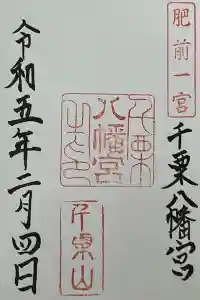 肥前一宮
千栗八幡宮
千栗八幡宮
千栗山
令和五年二月四日